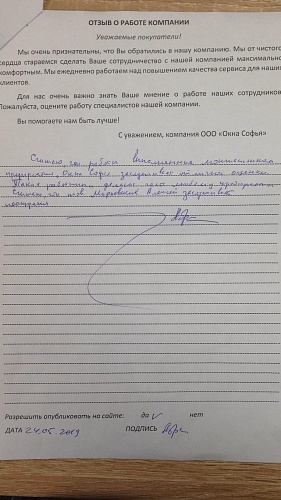 ОТЗЫВ О РАБОТЕ КОМПАНИИ
Уважаемые покупатели!
Мы очень признательны, что Вы обратились в нашу компанию. Мы от чистого
сердца стараемся сделать Ваше сотрудничество с нашей компанией максимально
комфортным. Мы ежедневно работаем над повышением качества сервиса для наших
клиентов.
Для нас очень важно знать Ваше мнение о работе наших сотрудников.
Пожалуйста, оцените работу специалистов нашей компании.
Вы помогаете нам быть лучше!
С уважением, компания ООО «Окна Софья»
Считаю, что работа выполненная монтажником
предприятия Окна Софья заслуживает отличной оценки.
Такие работники делают честь любому предприятию
Считаю, что тов Алексей заслуживает
Разрешить опубликовать на сайте: да v нет
ДАТА 24.05.2019 ПОДПИСЬ